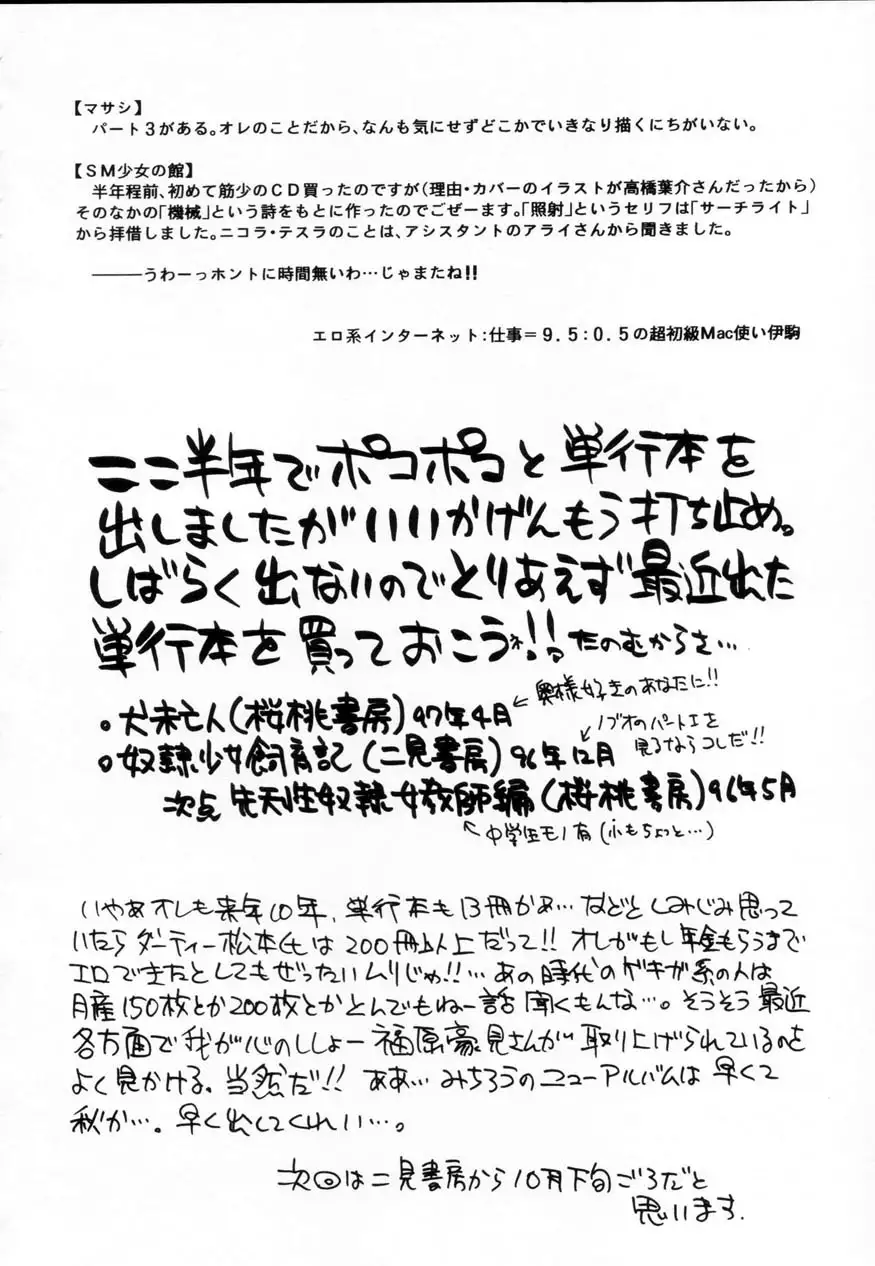 【マサシ】
パート3がある。オレのことだから、なんも気にせずどこかでいきなり描くにちがいない。
【SM少女の館】
半年程前、初めて筋少のCD買ったのですが(理由・カバーのイラストが高橋葉介さんだったから)
そのなかの「機械」という詩をもとに作ったのでごぜーます。「照射」というセリフは「サーチライト」
から拝借しました。ニコラ・テスラのことは、アシスタントのアライさんから聞きました。
―――うわーっホントに時間無いわ…じゃまたね!!
エロ系インターネット:仕事=9.5:0.5の超初級Mac使い伊駒
ここ半年でポコポコと単行本を
出しましたがいいかげんもう打ち止め。
しばらく出ないのでとりあえず最近出た
単行本を買っておこうネ!!たのむからさ…
。犬未亡人(桜桃書房)97年4月 ←奥様好きのあなたに!!
。奴隷少女飼育記(二見書房)96年12月 ←ノブオのパートIを
見るならコレだ!!
次点 先天性奴隷女教師編(桜桃書房)96年5月
←中学生モノ有(小もちょっと…)
いやあオレも来年10年、単行本も13冊かぁ…などとしみじみ思って
いたらダーティー松本氏は200冊以上だって!!オレがもし年金もらうまで
エロで生きたとしてもぜったいムリじゃ!!…あの時代のゲキガ系の人は
月産150枚とか200枚とかとんでもねー話聞くもんな…。そうそう最近
各方面で我が心のししょー福原豪見さんが取り上げられているのを
よく見かける。当然だ!!ああ…みちろうのニューアルバムは早くて
秋か…。早く出してくれい…。
次回は二見書房から10月下旬ごろだと
思います.